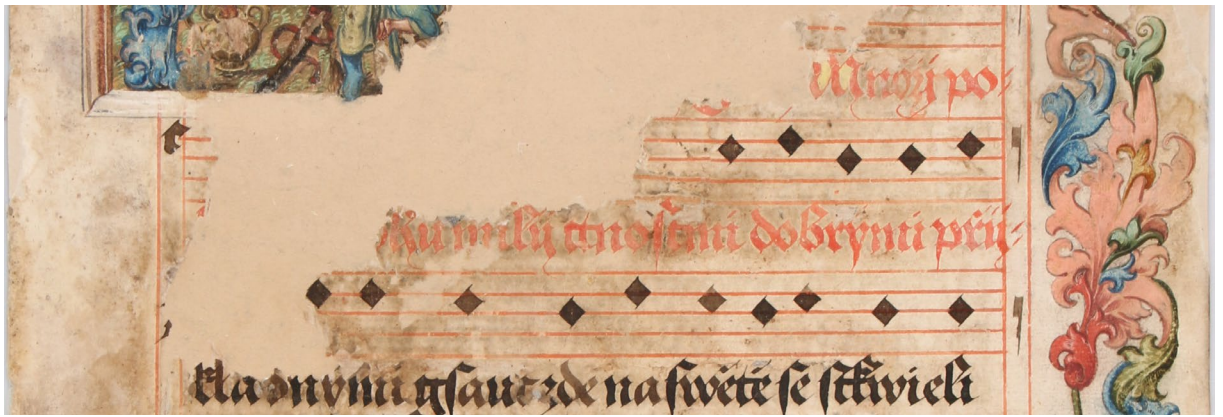 Mnozý po-
ku milý ctnostmi dobrými přij-
kla onými gsauc zde na swětě se stkwieli